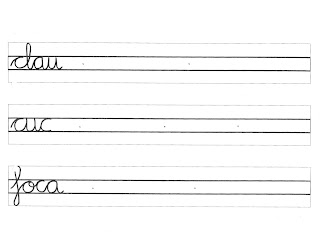 clau
cuc
foca